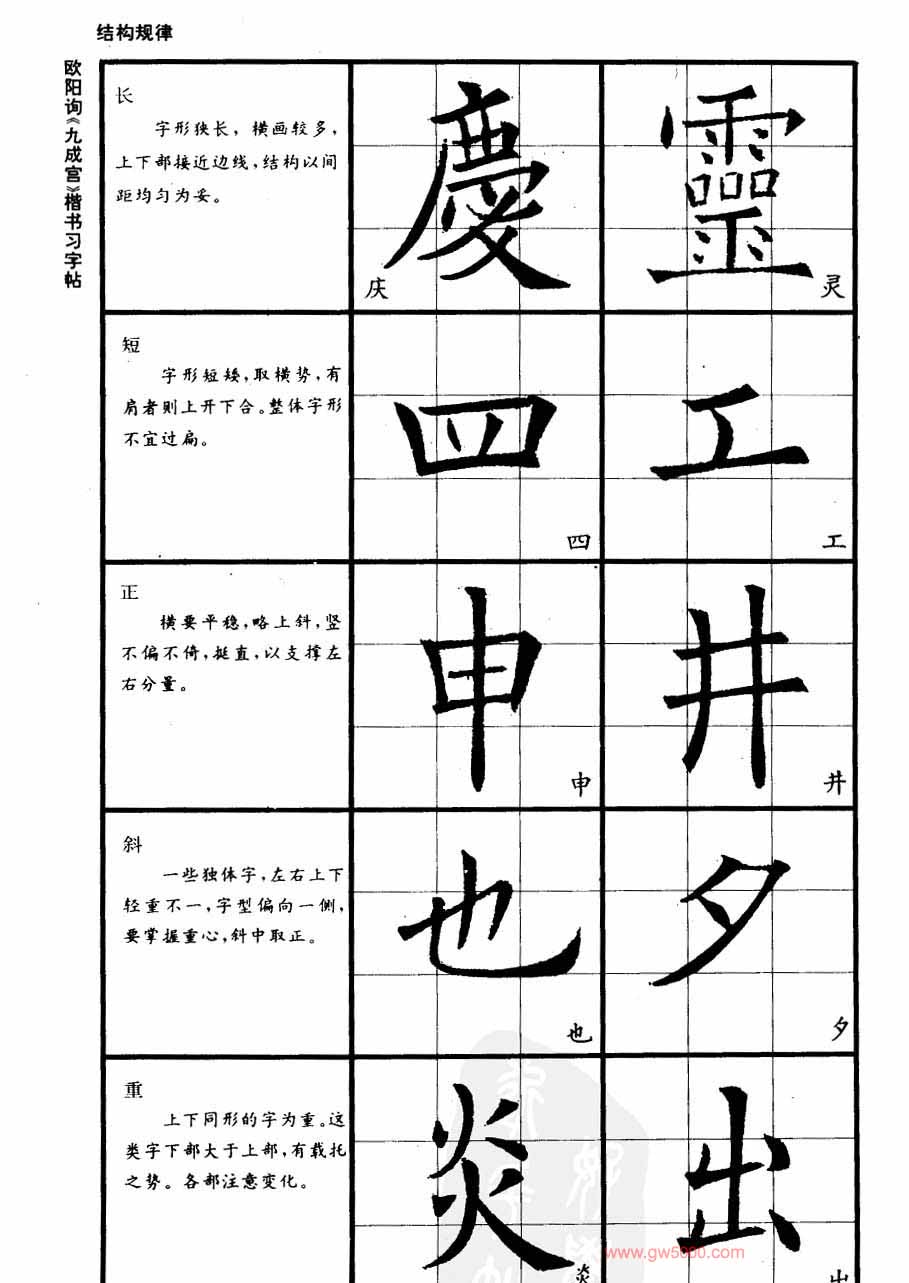 结构规律
欧阳询《九成宫》楷书习字帖
长
字形狭长，横画较多，
上下部接近边线，结构以间
距均匀为妥。
慶
庆
靈
灵
短
字形短矮，取横势，有
肩者则上开下合。整体字形
不宜过扁。
四
四
工
工
正
横要平稳，略上斜，竖
不偏不倚，挺直，以支撑左
右分量。
申
申
井
井
斜
一些独体字，左右上下
轻重不一，字型偏向一侧，
要掌握重心，斜中取正。
也
也
夕
夕
重
上下同形的字为重。这
类字下部大于上部，有载托
之势。各部注意变化。
炎
炎
出
出
www.gw5000.com